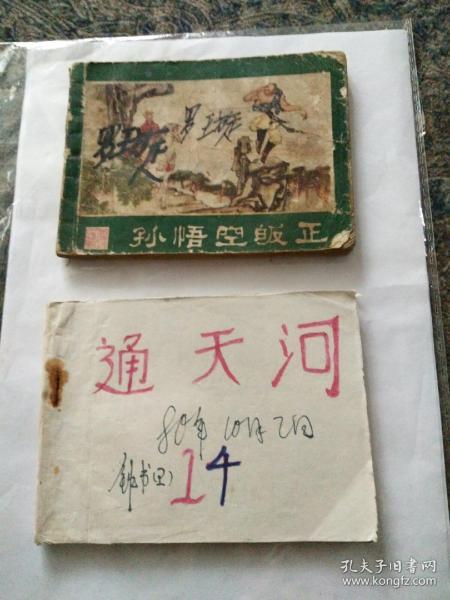 孙悟空皈正
通天河
80年10月2日
14
孔夫子旧书网
www.kongfz.com